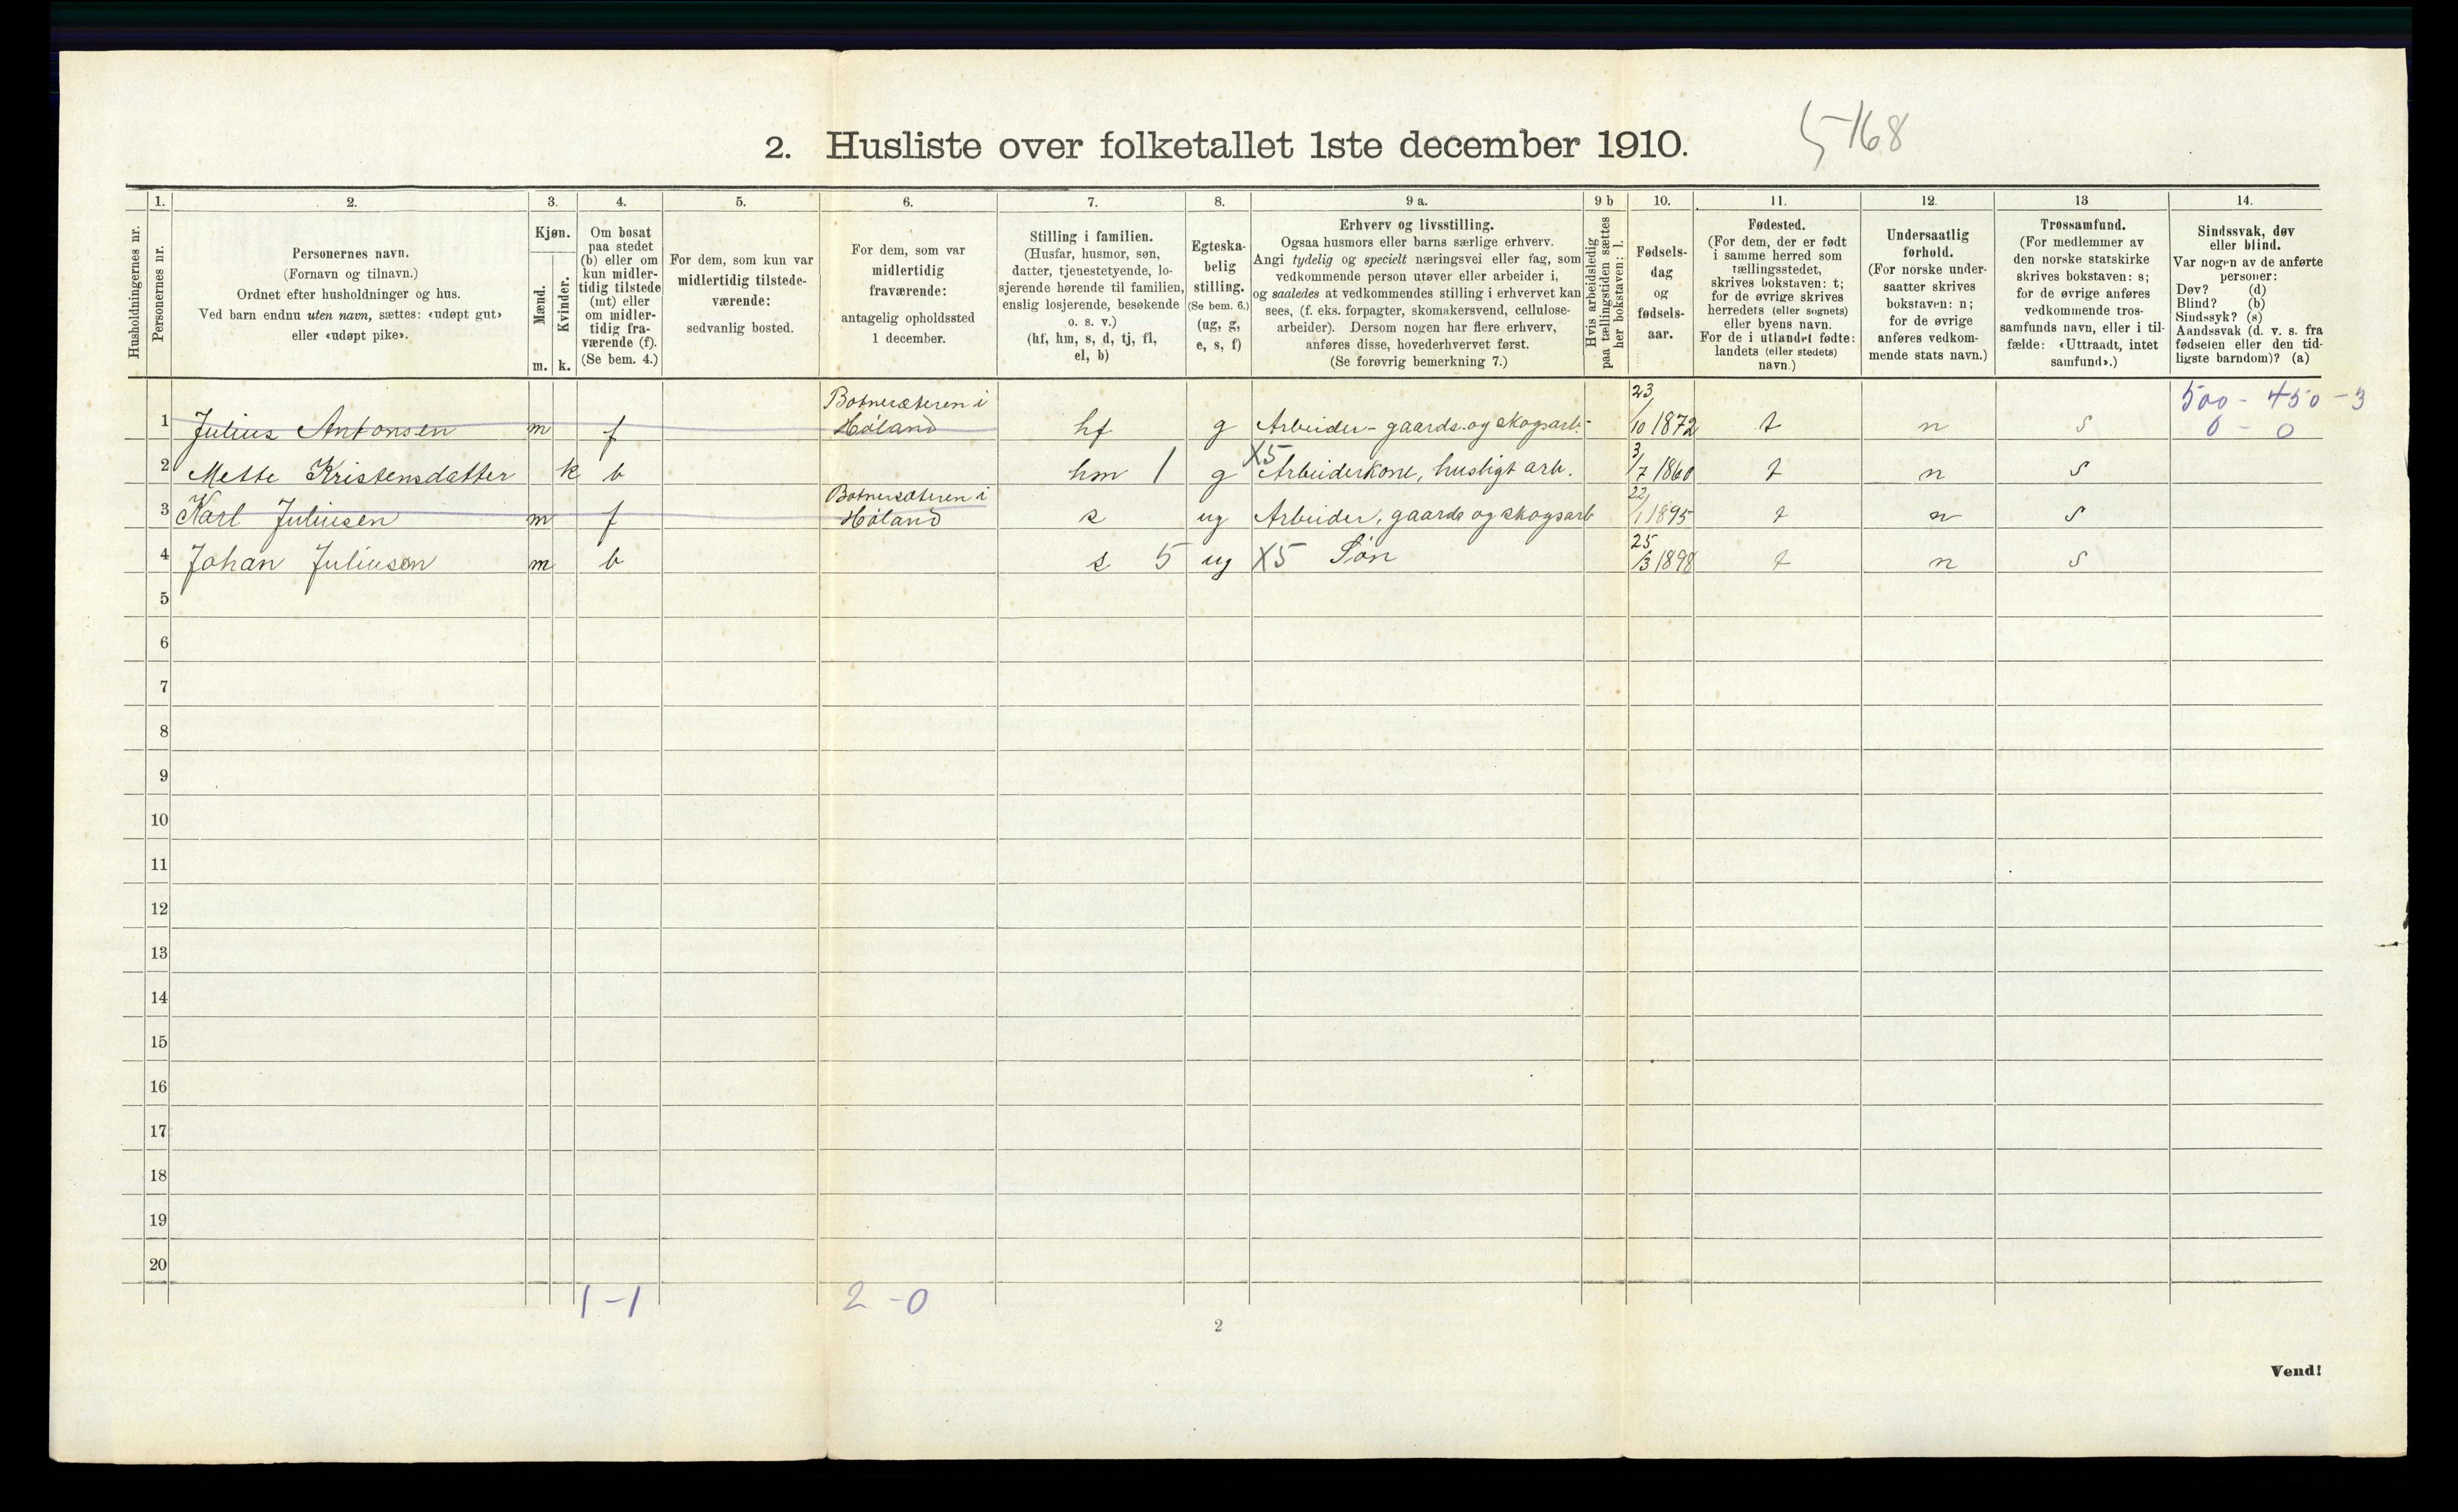 2. Husliste over folketallet 1ste december 1910.
5-168
Husholdningernes nr.
1.
Personernes nr.
2.
Personernes navn.
(Fornavn og tilnavn.)
Ordnet efter husholdninger og hus.
Ved barn endnu uten navn, sættes: «udøpt gut»
eller «udøpt pike».
3.
Kjøn.
Mænd.
Kvinder.
m. k.
4.
Om bosat
paa stedet
(b) eller om
kun midler-
tidig tilstede
(mt) eller
om midler-
tidig fra-
værende (f).
(Se bem. 4.)
5.
For dem, som kun var
midlertidig tilstede-
værende:
sedvanlig bosted.
6.
For dem, som var
midlertidig
fraværende:
antagelig opholdssted
1 december.
7.
Stilling i familien.
(Husfar, husmor, søn,
datter, tjenestetyende, lo-
sjerende hørende til familien,
enslig losjerende, besøkende
o. s. v.)
(hf, hm, s, d, tj, fl,
el, b)
8.
Egteska-
belig
stilling.
(Se bem. 6.)
(ug, g,
e, s, f)
9 a.
Erhverv og livsstilling.
Ogsaa husmors eller barns særlige erhverv.
Angi tydelig og specielt næringsvei eller fag, som
vedkommende person utøver eller arbeider i,
og saaledes at vedkommendes stilling i erhvervet kan
sees, (f. eks. forpagter, skomakersvend, cellulose-
arbeider). Dersom nogen har flere erhverv,
anføres disse, hovederhvervet først.
(Se forøvrig bemerkning 7.)
9 b
Hvis arbeidsledig
paa tællingstiden sættes
her bokstaven: l.
10.
Fødsels-
dag
og
fødsels-
aar.
11.
Fødested.
(For dem, der er født
i samme herred som
tællingsstedet,
skrives bokstaven: t;
for de øvrige skrives
herredets (eller sognets)
eller byens navn.
For de i utlandet fødte:
landets (eller stedets)
navn.)
12.
Undersaatlig
forhold.
(For norske under-
saatter skrives
bokstaven: n;
for de øvrige
anføres vedkom-
mende stats navn.)
13
Trossamfund.
(For medlemmer av
den norske statskirke
skrives bokstaven: s;
for de øvrige anføres
vedkommende tros-
samfunds navn, eller i til-
fælde: «Uttraadt, intet
samfund».)
14.
Sindssvak, døv
eller blind.
Var nogen av de anførte
personer:
Døv? (d)
Blind? (b)
Sindssyk? (s)
Aandssvak (d. v. s. fra
fødselen eller den tid-
ligste barndom)? (a)
500 - 450 - 3
0 - 0
1 Julius Antonsen m f Botnersæteren i Høland hf g Arbeider - gaards- og skogsarb. 23/10 1872 t n s
2 Mette Kristensdatter k b hm 1 g X5 Arbeiderkone, husligt arb. 3/7 1860 t n s
3 Karl Juliusen m f Botnersæteren i Høland s ug Arbeider, gaards og skogsarb 22/1 1895 t n s
4 Johan Juliusen m b s 5 ug X5 Søn 25/3 1898 t n s
5
6
7
8
9
10
11
12
13
14
15
16
17
18
19
20
1 - 1
2 - 0
2
Vend!